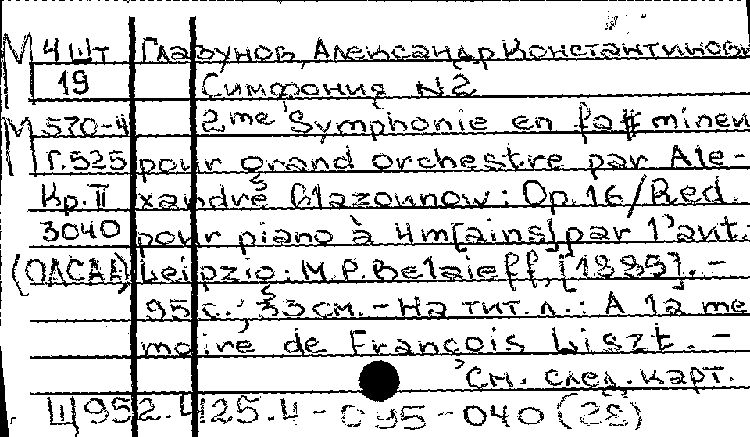 М 4шт Глазунов, Александр Константинови
19 Симфония №2
М 570-4 2me Symphonie en fa# mineu
Г.525 pour grand orchestre par Ale-
Кр.II xandre Glazounow: Op.16/Red.
3040 pour piano à 4m[ains] par l'aut.
(ОЛСАА) Leipzig: M.P.Belaieff, [1889]. -
95 с.; 33 см. - На тит. л.: A la me
moire de François Liszt. -
См. след. карт.
Щ952.4125.4-095-040 (28)